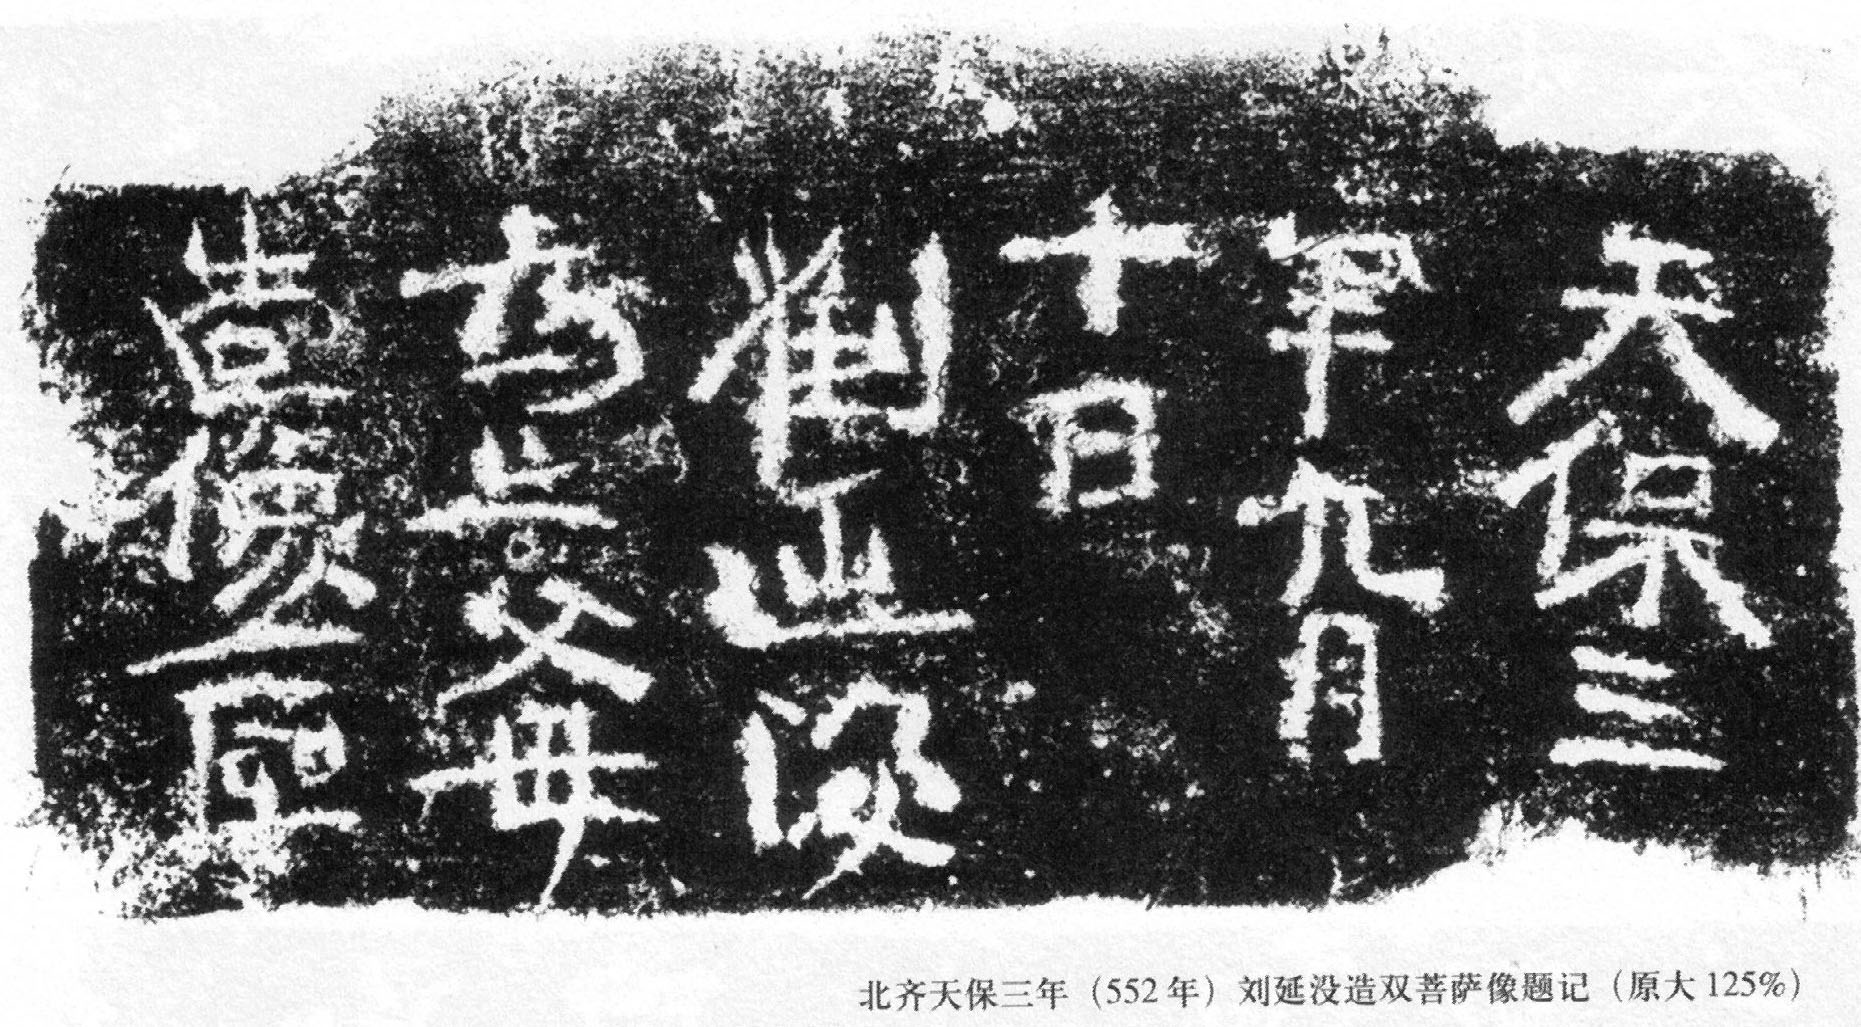 天保三
年九月
十日
劉延没
為亡父母
造像一區
北齐天保三年（552年）刘延没造双菩萨像题记（原大125%）